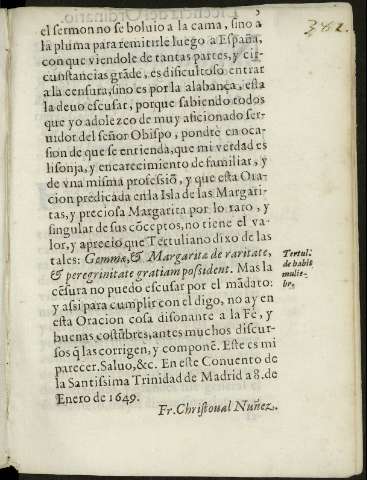 3
382.
el sermon no se boluio a la cama, sino a
la pluma para remitirle luego a España,
con que viendole de tantas partes, y cir-
cunstancias grãde, es dificultoso entrar
a la censura, sino es por la alabança, esta
la deuo escusar, porque sabiendo todos
que yo adolezco de muy aficionado ser-
uidor del señor Obispo, pondrè en oca-
sion de que se entienda, que mi verdad es
lisonja, y encarecimiento de familiar, y
de vna misma professiõ, y que esta Ora-
cion predicada en la Isla de las Margari-
tas, y preciosa Margarita por lo raro, y
singular de sus cõceptos, no tiene el va-
lor, y aprecio que Tertuliano dixo de las
tales: Gemmæ, & Margaritæ de raritate,
& peregrinitate gratiam possident. Mas la
cẽsura no puedo escusar por el mãdato:
y assi para cumplir con el digo, no ay en
esta Oracion cosa disonante a la Fè, y
buenas costũbres, antes muchos discur-
sos q̃ las corrigen, y componẽ. Este es mi
parecer. Saluo, &c. En este Conuento de
la Santissima Trinidad de Madrid a 8. de
Enero de 1649.
Fr. Christoual Nuñez.
Tertul.
de habit.
mulie-
br.